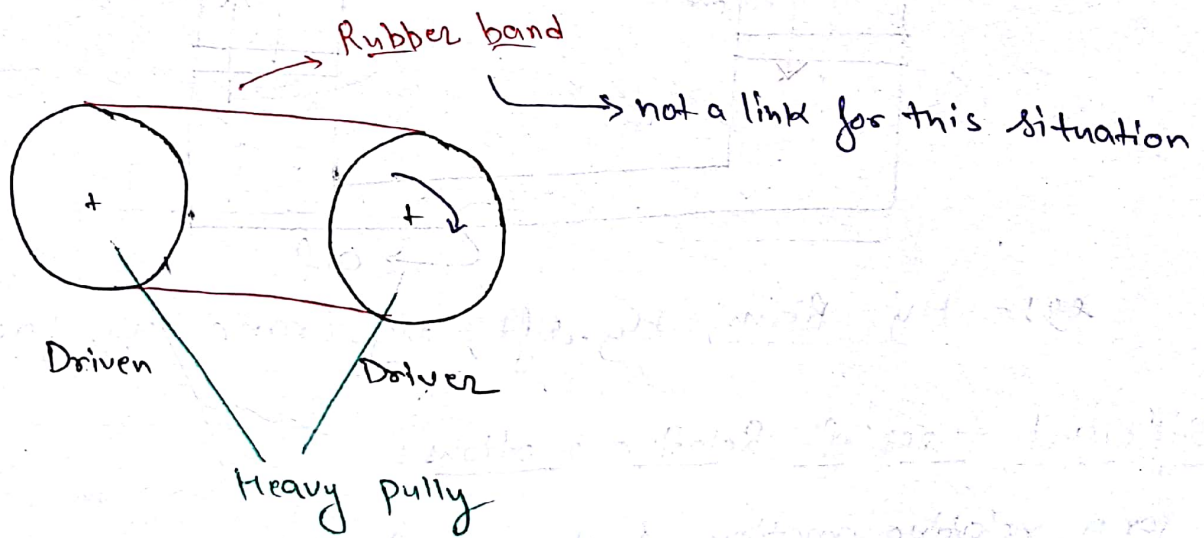 Rubber band
not a link for this situation
Driven
Driver
Heavy pully